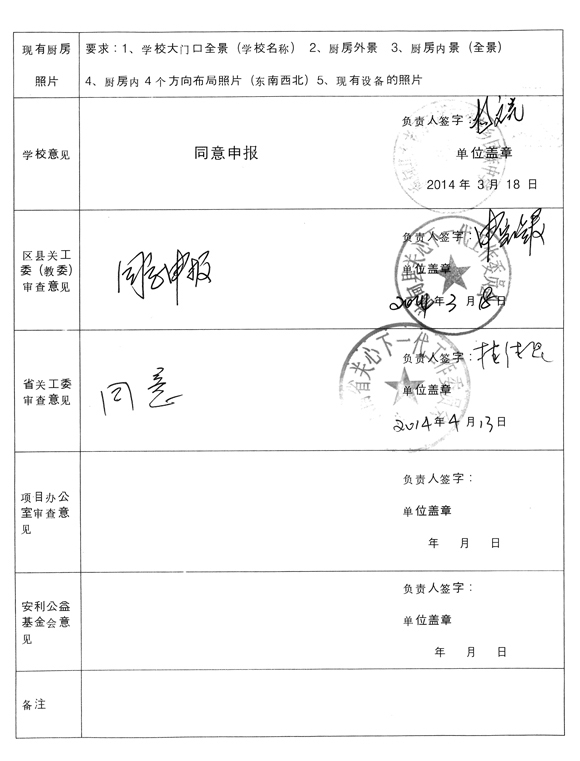 现有厨房 要求:1、学校大门口全景(学校名称) 2、厨房外景 3、厨房内景(全景)
照片 4、厨房内4个方向布局照片(东南西北)5、现有设备的照片
学校意见
同意申报
负责人签字:
单位盖章
2014年3月18日
区县关工
委(教委)
审查意见
同意申报
负责人签字:
单位盖章
2014年3月18日
关心下一代
省关工委
审查意见
同意
负责人签字:
单位盖章
2014年4月13日
省关心下一代工作委员
项目办公
室审查意
见
负责人签字:
单位盖章
年 月 日
安利公益
基金会意
见
负责人签字:
单位盖章
年 月 日
备注